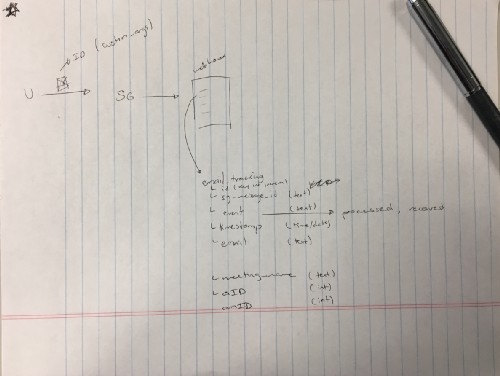 ID (custom_args)
U
SG
webhook
email tracking
id
sg_message_id (text)
event (text) processed, received
timestamp (time/date)
email (text)
meeting_name (text)
ID (int)
ID (int)